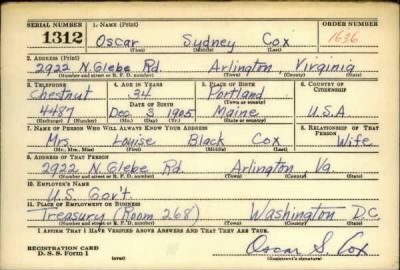 SERIAL NUMBER 1. NAME (Print) ORDER NUMBER
1312 Oscar Sydney Cox 1636
(First) (Middle) (Last)
2. ADDRESS (Print)
2922 N. Glebe Rd. Arlington, Virginia
(Number and street or R. F. D. number) (Town) (County) (State)
3. TELEPHONE 4. AGE IN YEARS 5. PLACE OF BIRTH 6. COUNTRY OF CITIZENSHIP
Chestnut 34 Portland
DATE OF BIRTH (Town or county)
4489 Dec. 3 1905 Maine U.S.A.
(Exchange) (Number) (Mo.) (Day) (Yr.) (State or country)
7. NAME OF PERSON WHO WILL ALWAYS KNOW YOUR ADDRESS 8. RELATIONSHIP OF THAT PERSON
Mrs. Louise Black Cox Wife
(Mr., Mrs., Miss) (First) (Middle) (Last)
9. ADDRESS OF THAT PERSON
2922 N. Glebe Rd. Arlington Va.
(Number and street or R. F. D. number) (Town) (County) (State)
10. EMPLOYER'S NAME
U.S. Gov't.
11. PLACE OF EMPLOYMENT OR BUSINESS
Treasury (Room 268) Washington D.C.
(Number and street or R. F. D. number) (Town) (County) (State)
I AFFIRM THAT I HAVE VERIFIED ABOVE ANSWERS AND THAT THEY ARE TRUE.
REGISTRATION CARD
D. S. S. Form 1
Oscar S. Cox
(Registrant's signature)